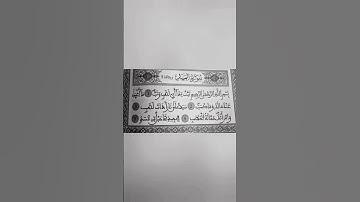 سورة المسد
بِسْمِ اللَّهِ الرَّحْمَٰنِ الرَّحِيمِ تَبَّتْ يَدَا أَبِي لَهَبٍ وَتَبَّ مَا أَغْنَىٰ
عَنْهُ مَالُهُ وَمَا كَسَبَ سَيَصْلَىٰ نَارًا ذَاتَ لَهَبٍ
وَامْرَأَتُهُ حَمَّالَةُ الْحَطَبِ فِي جِيدِهَا حَبْلٌ مِنْ مَسَدٍ